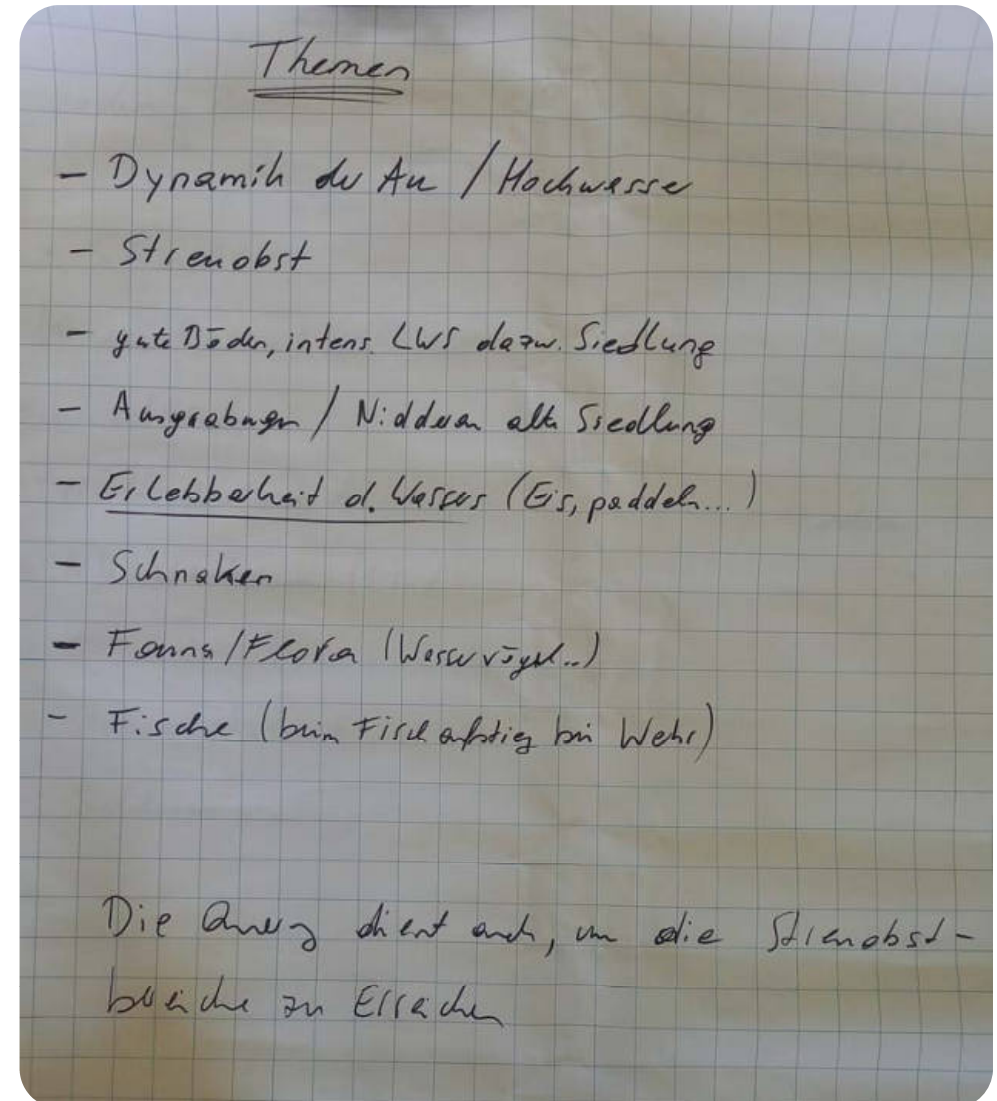 Themen
- Dynamik der Au / Hochwasser
- Streuobst
- gute Böden, intens. LWS dazw. Siedlung
- Ausgrabungen / Nidderau alte Siedlung
- Erlebbarkeit d. Wassers (Eis, paddeln...)
- Schnaken
- Fauna/Flora (Wasservögel..)
- Fische (beim Fischaufstieg bei Wehr)
Die dient auch, um die Streuobst-
bereiche zu Erreichen